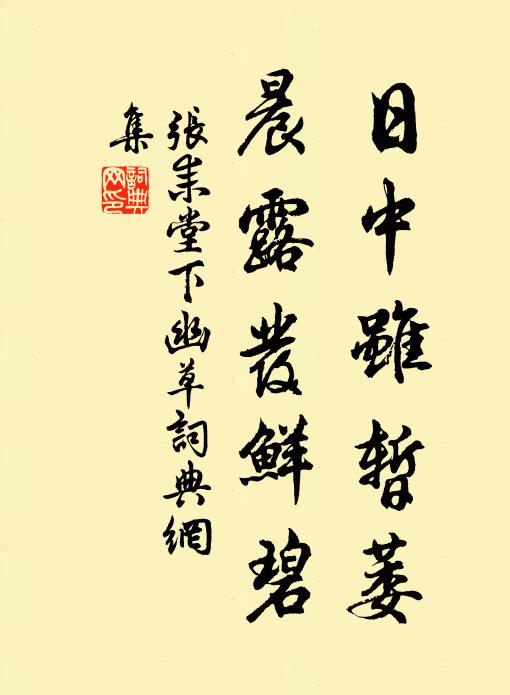 日中雖暫萎
晨露發鮮碧
張耒堂下幽草詞典網
集
詞典
网印